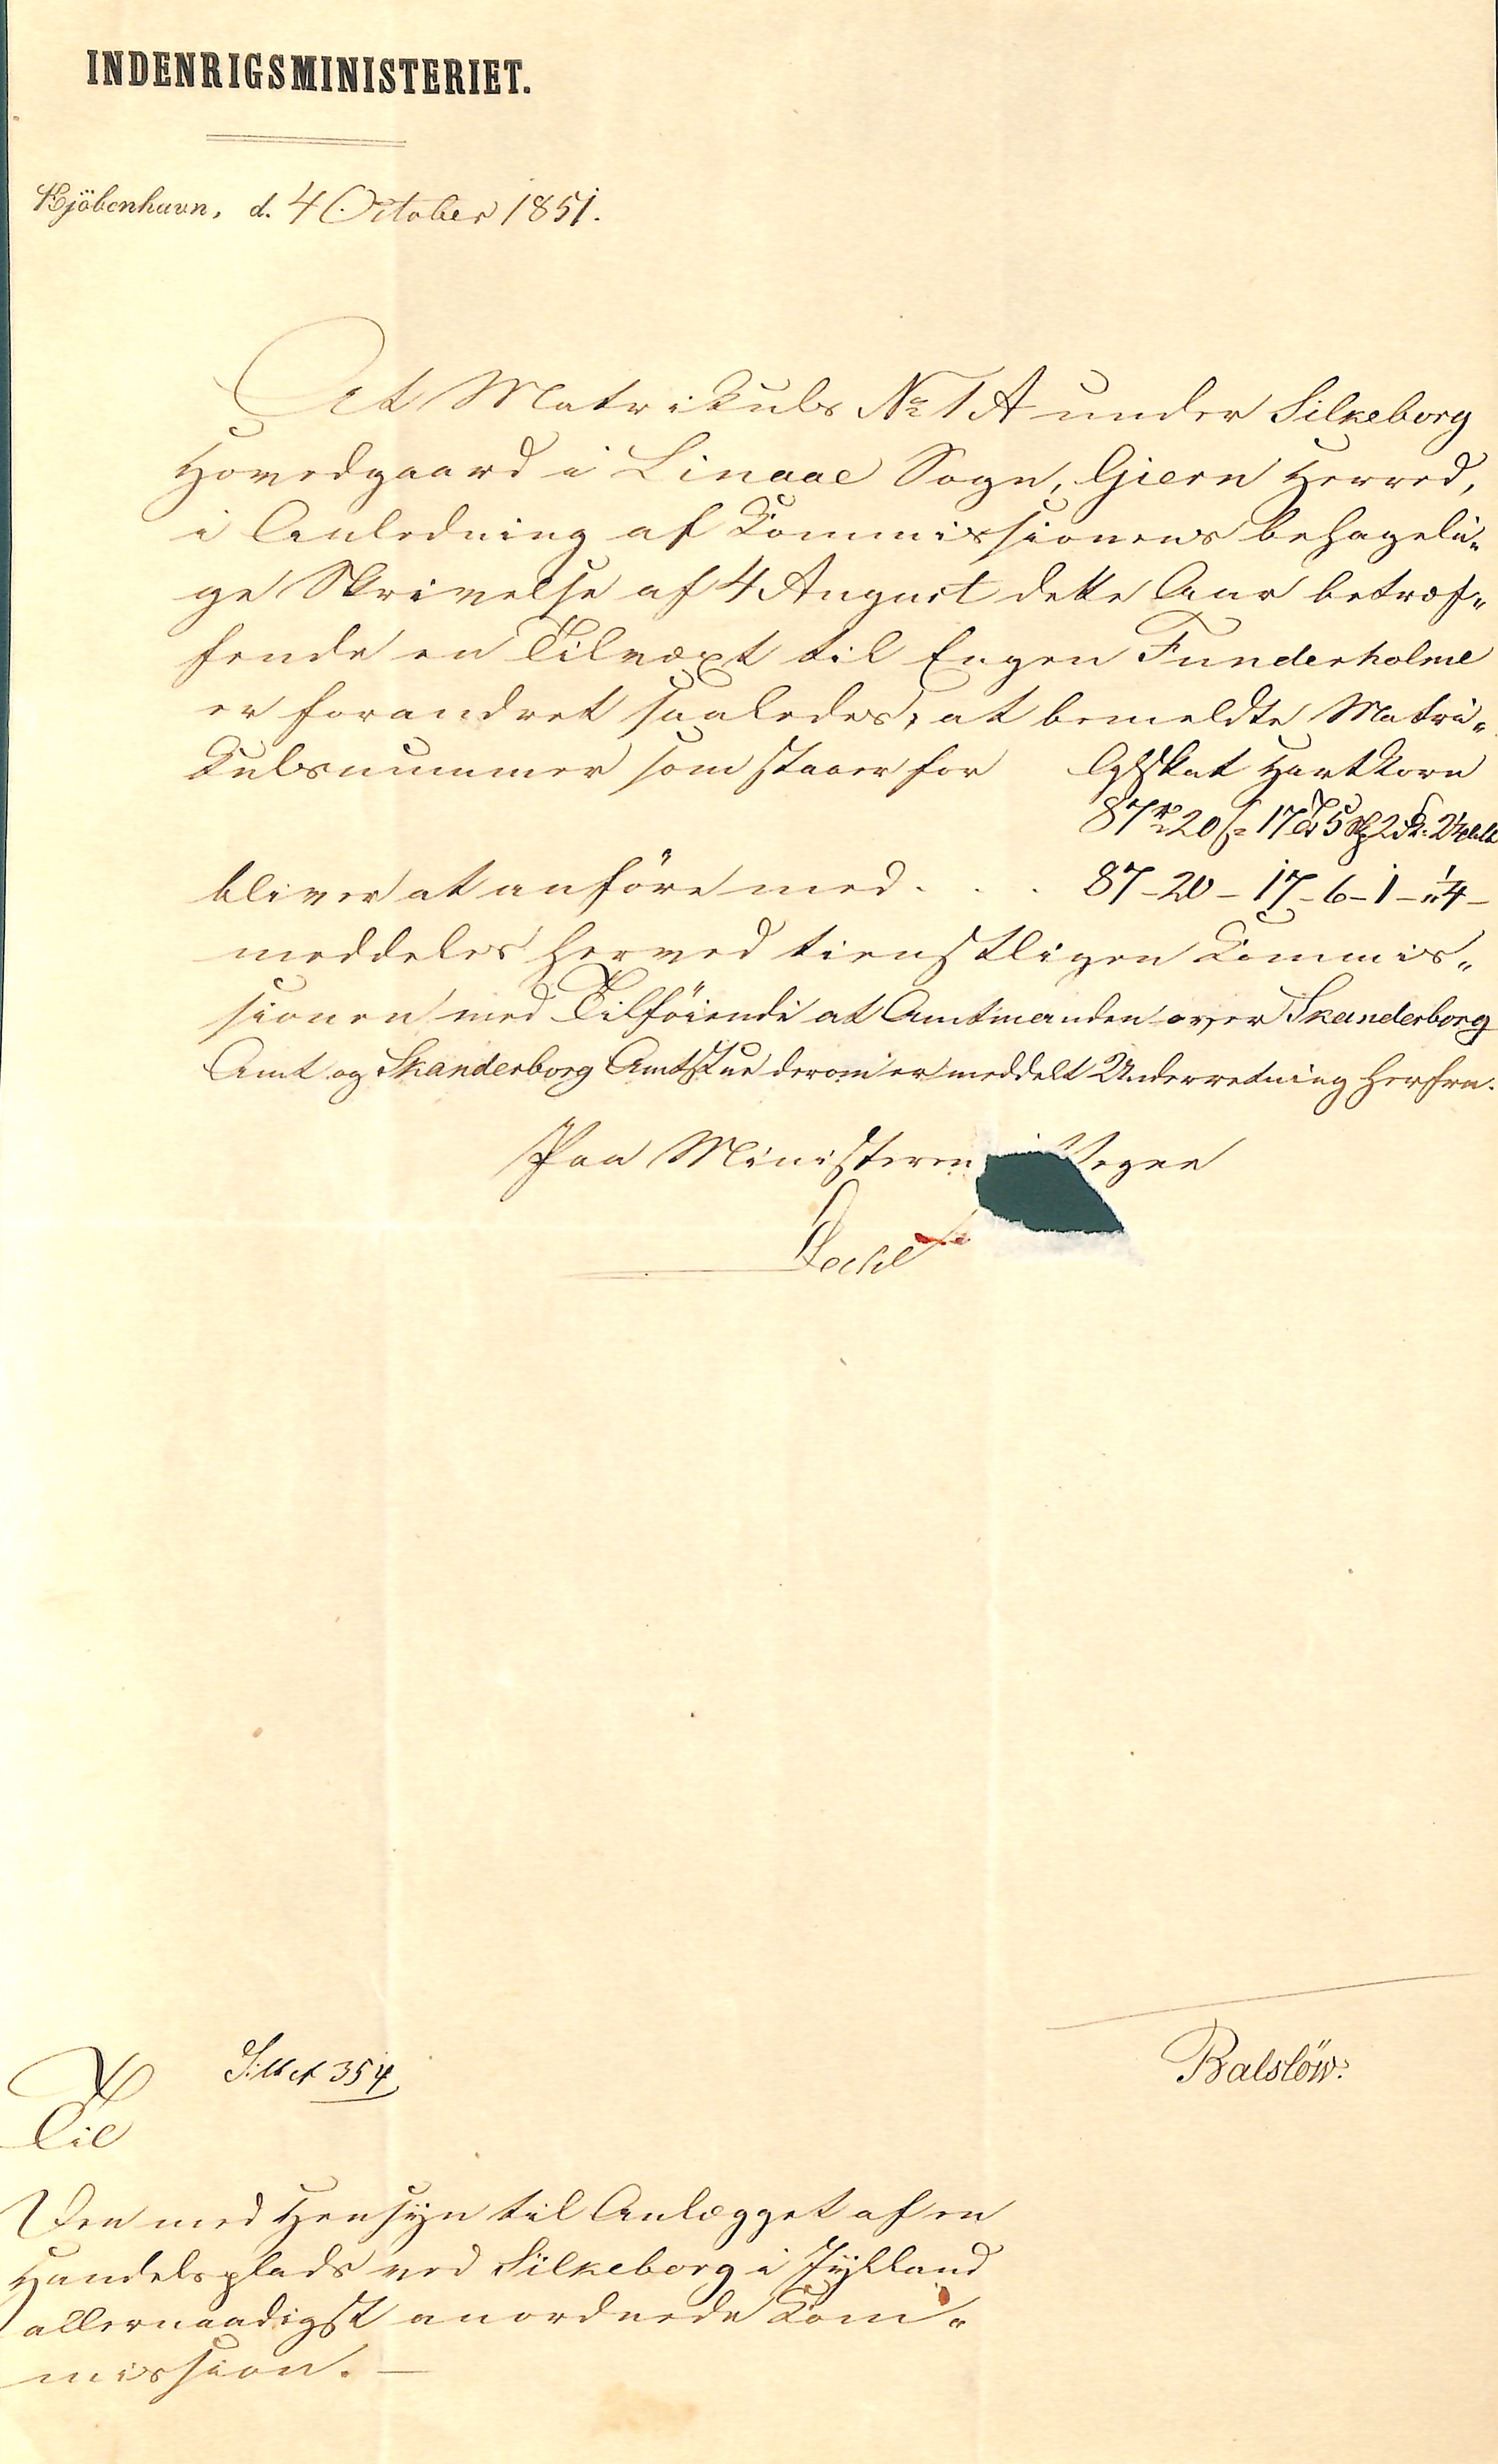 INDENRIGSMINISTERIET.
Kjöbenhavn, d. 4 October 1851.
At Matrikuls No 1A under Silkeborg
Hovedgaard i Linaae Sogn, Gjern Herred,
i Anledning af Kommissionens behageli„
ge Skrivelse af 4 August dette Aar betræf„
fende en Tilvæxt til Engen Funderholme
er forandret saaledes, at bemeldte Matri„
kulsnummer som staaer for Glskat Hartkorn
87 20 17 5 2 2¼
bliver at anföre med . . . 87 - 20 - 17 - 6 - 1 - „¼ -
meddeles herved tienstligen Kommis„
sionen med Tilföiende at Amtmanden over Skanderborg
Amt og Skanderborg Amtstue derom er meddelt Underretning herfra.
Paa Ministerens Vegne
Balslöw.
354
Til
Den med Hensyn til Anlægget af en
Handelsplads ved Silkeborg i Jylland
allernaadigst anordnede Kom„
mission. —